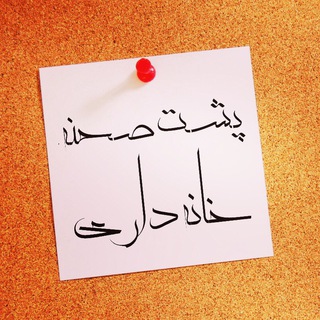 پشت صحنه
خانه داری